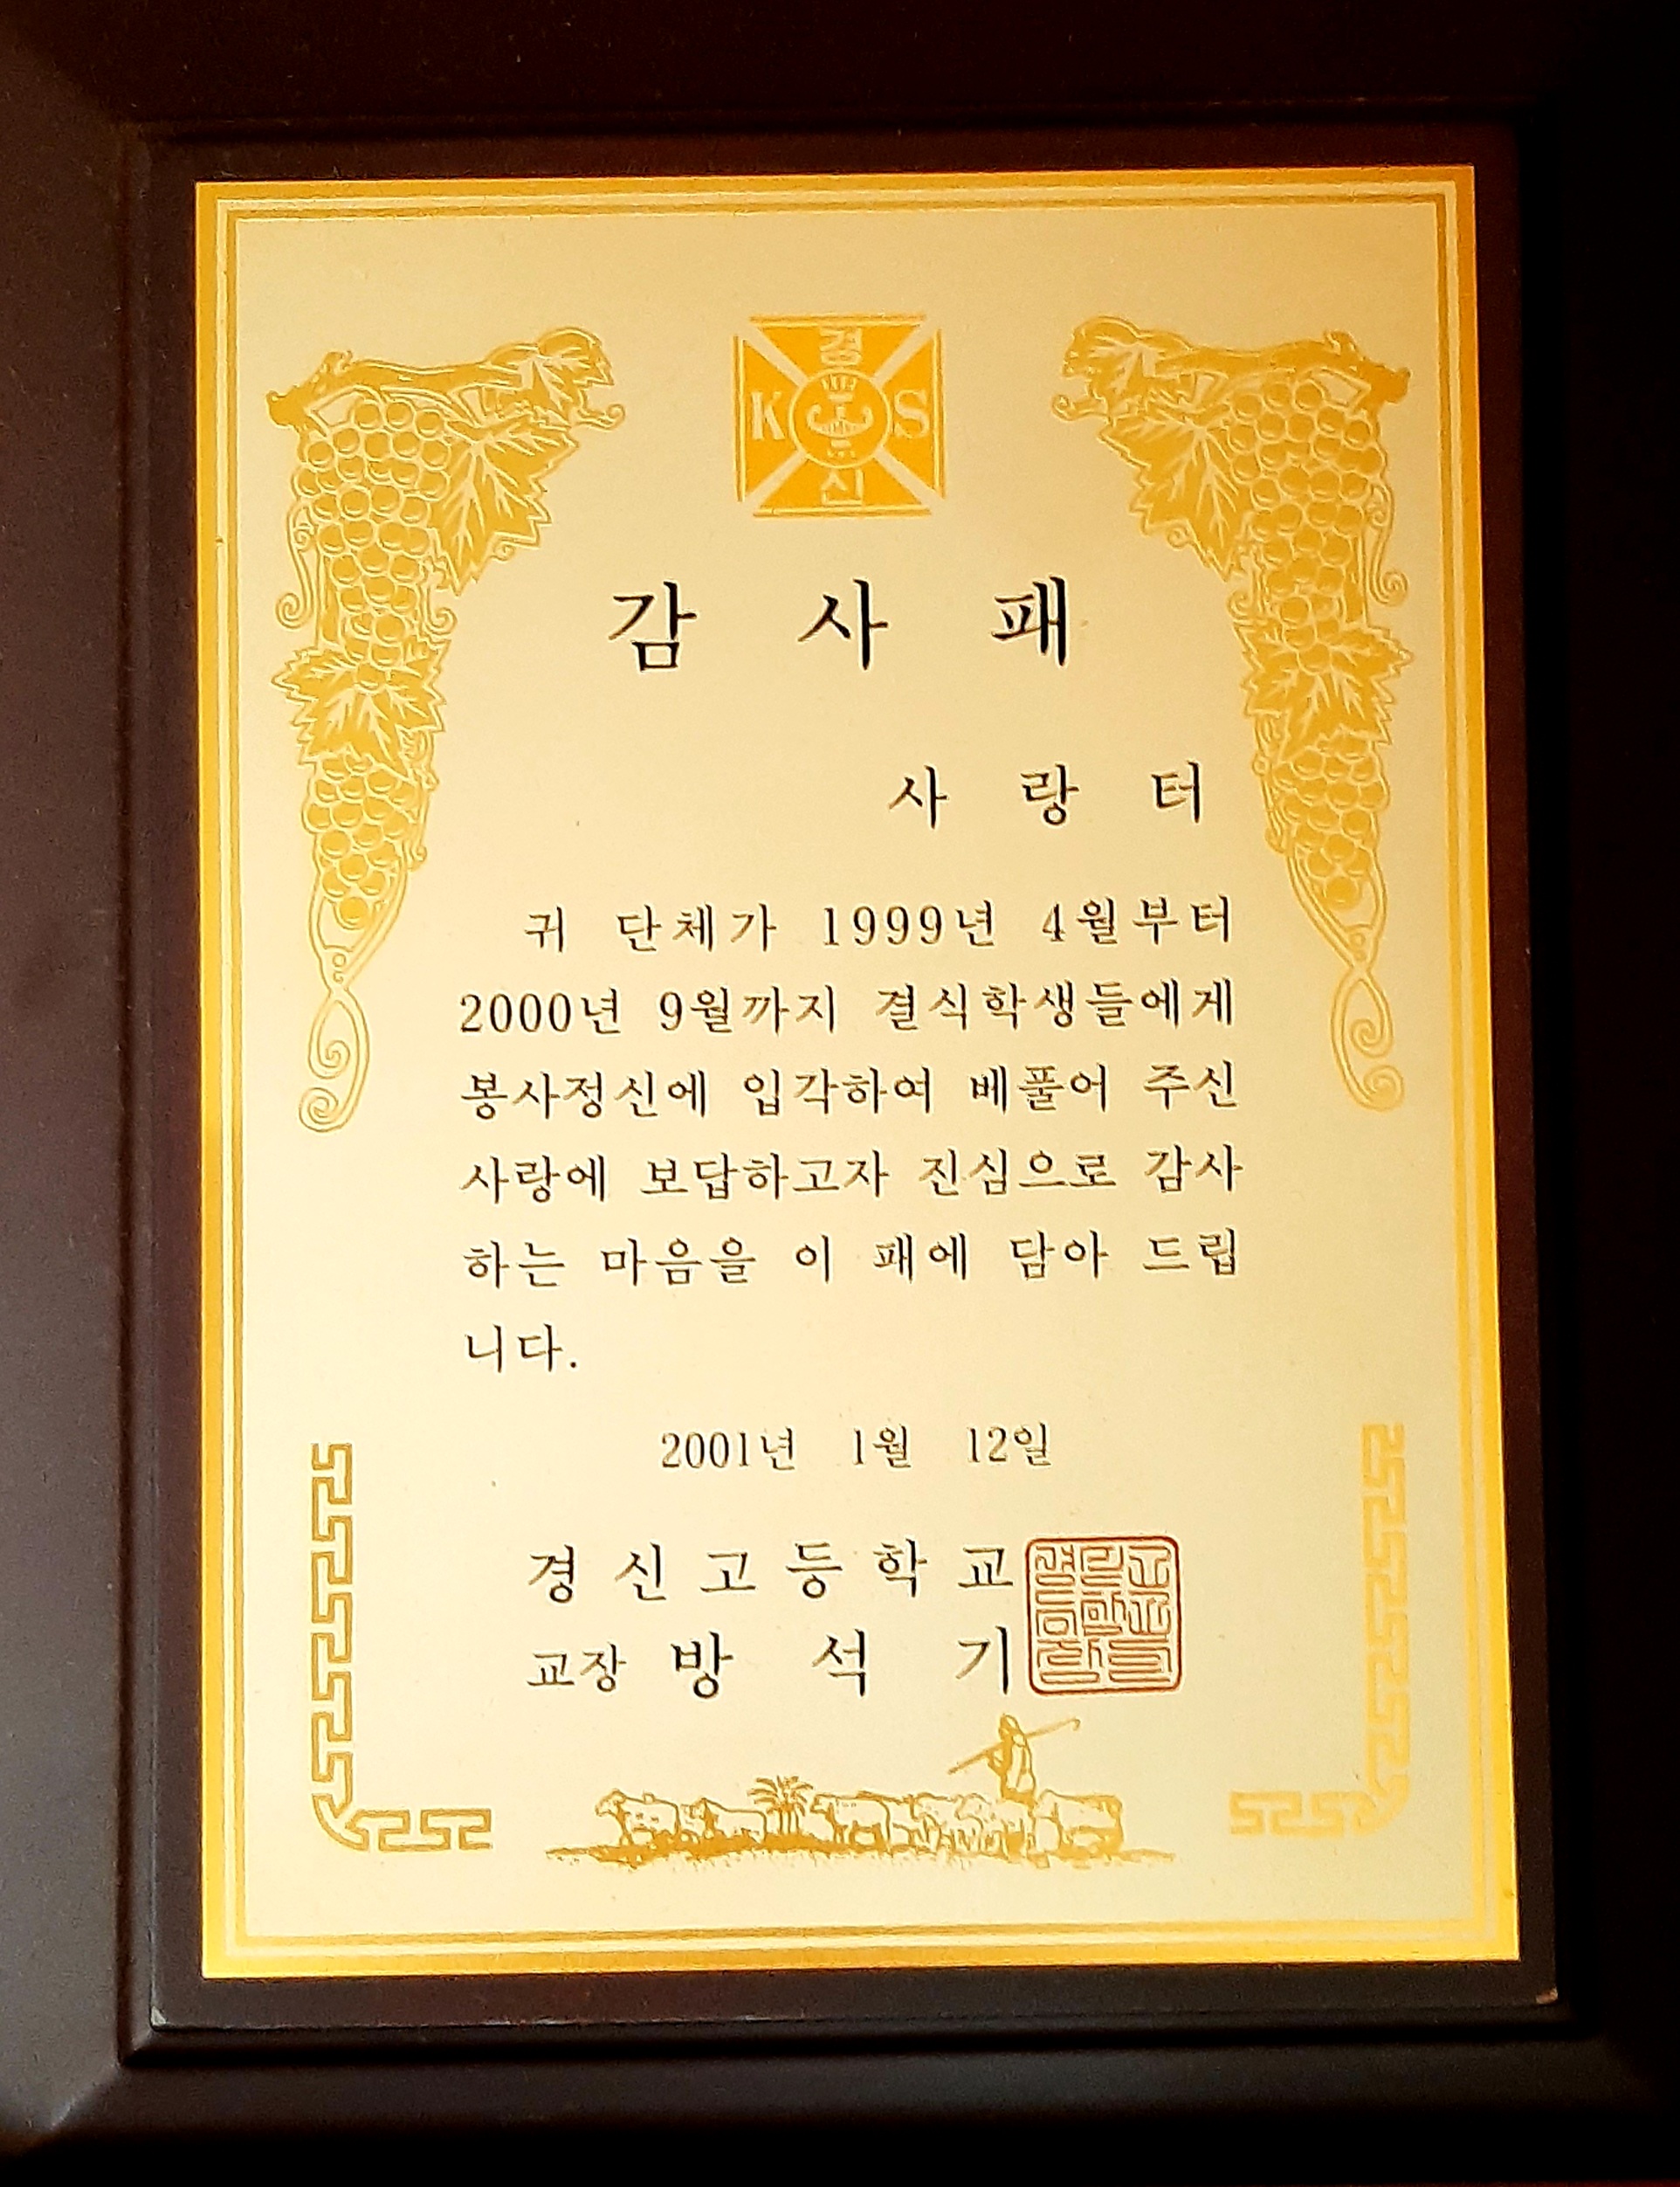 경
K S
신
감 사 패
사 랑 터
귀 단체가 1999년 4월부터
2000년 9월까지 결식학생들에게
봉사정신에 입각하여 베풀어 주신
사랑에 보답하고자 진심으로 감사
하는 마음을 이 패에 담아 드립
니다.
2001년 1월 12일
경 신 고 등 학 교
교장 방 석 기